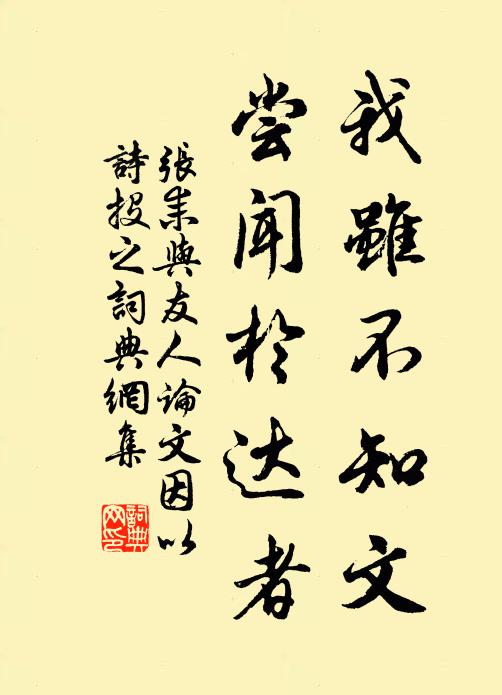 我雖不知文
尝闻於达者
張耒與友人論文因以
詩投之詞典網集
詞典
网印